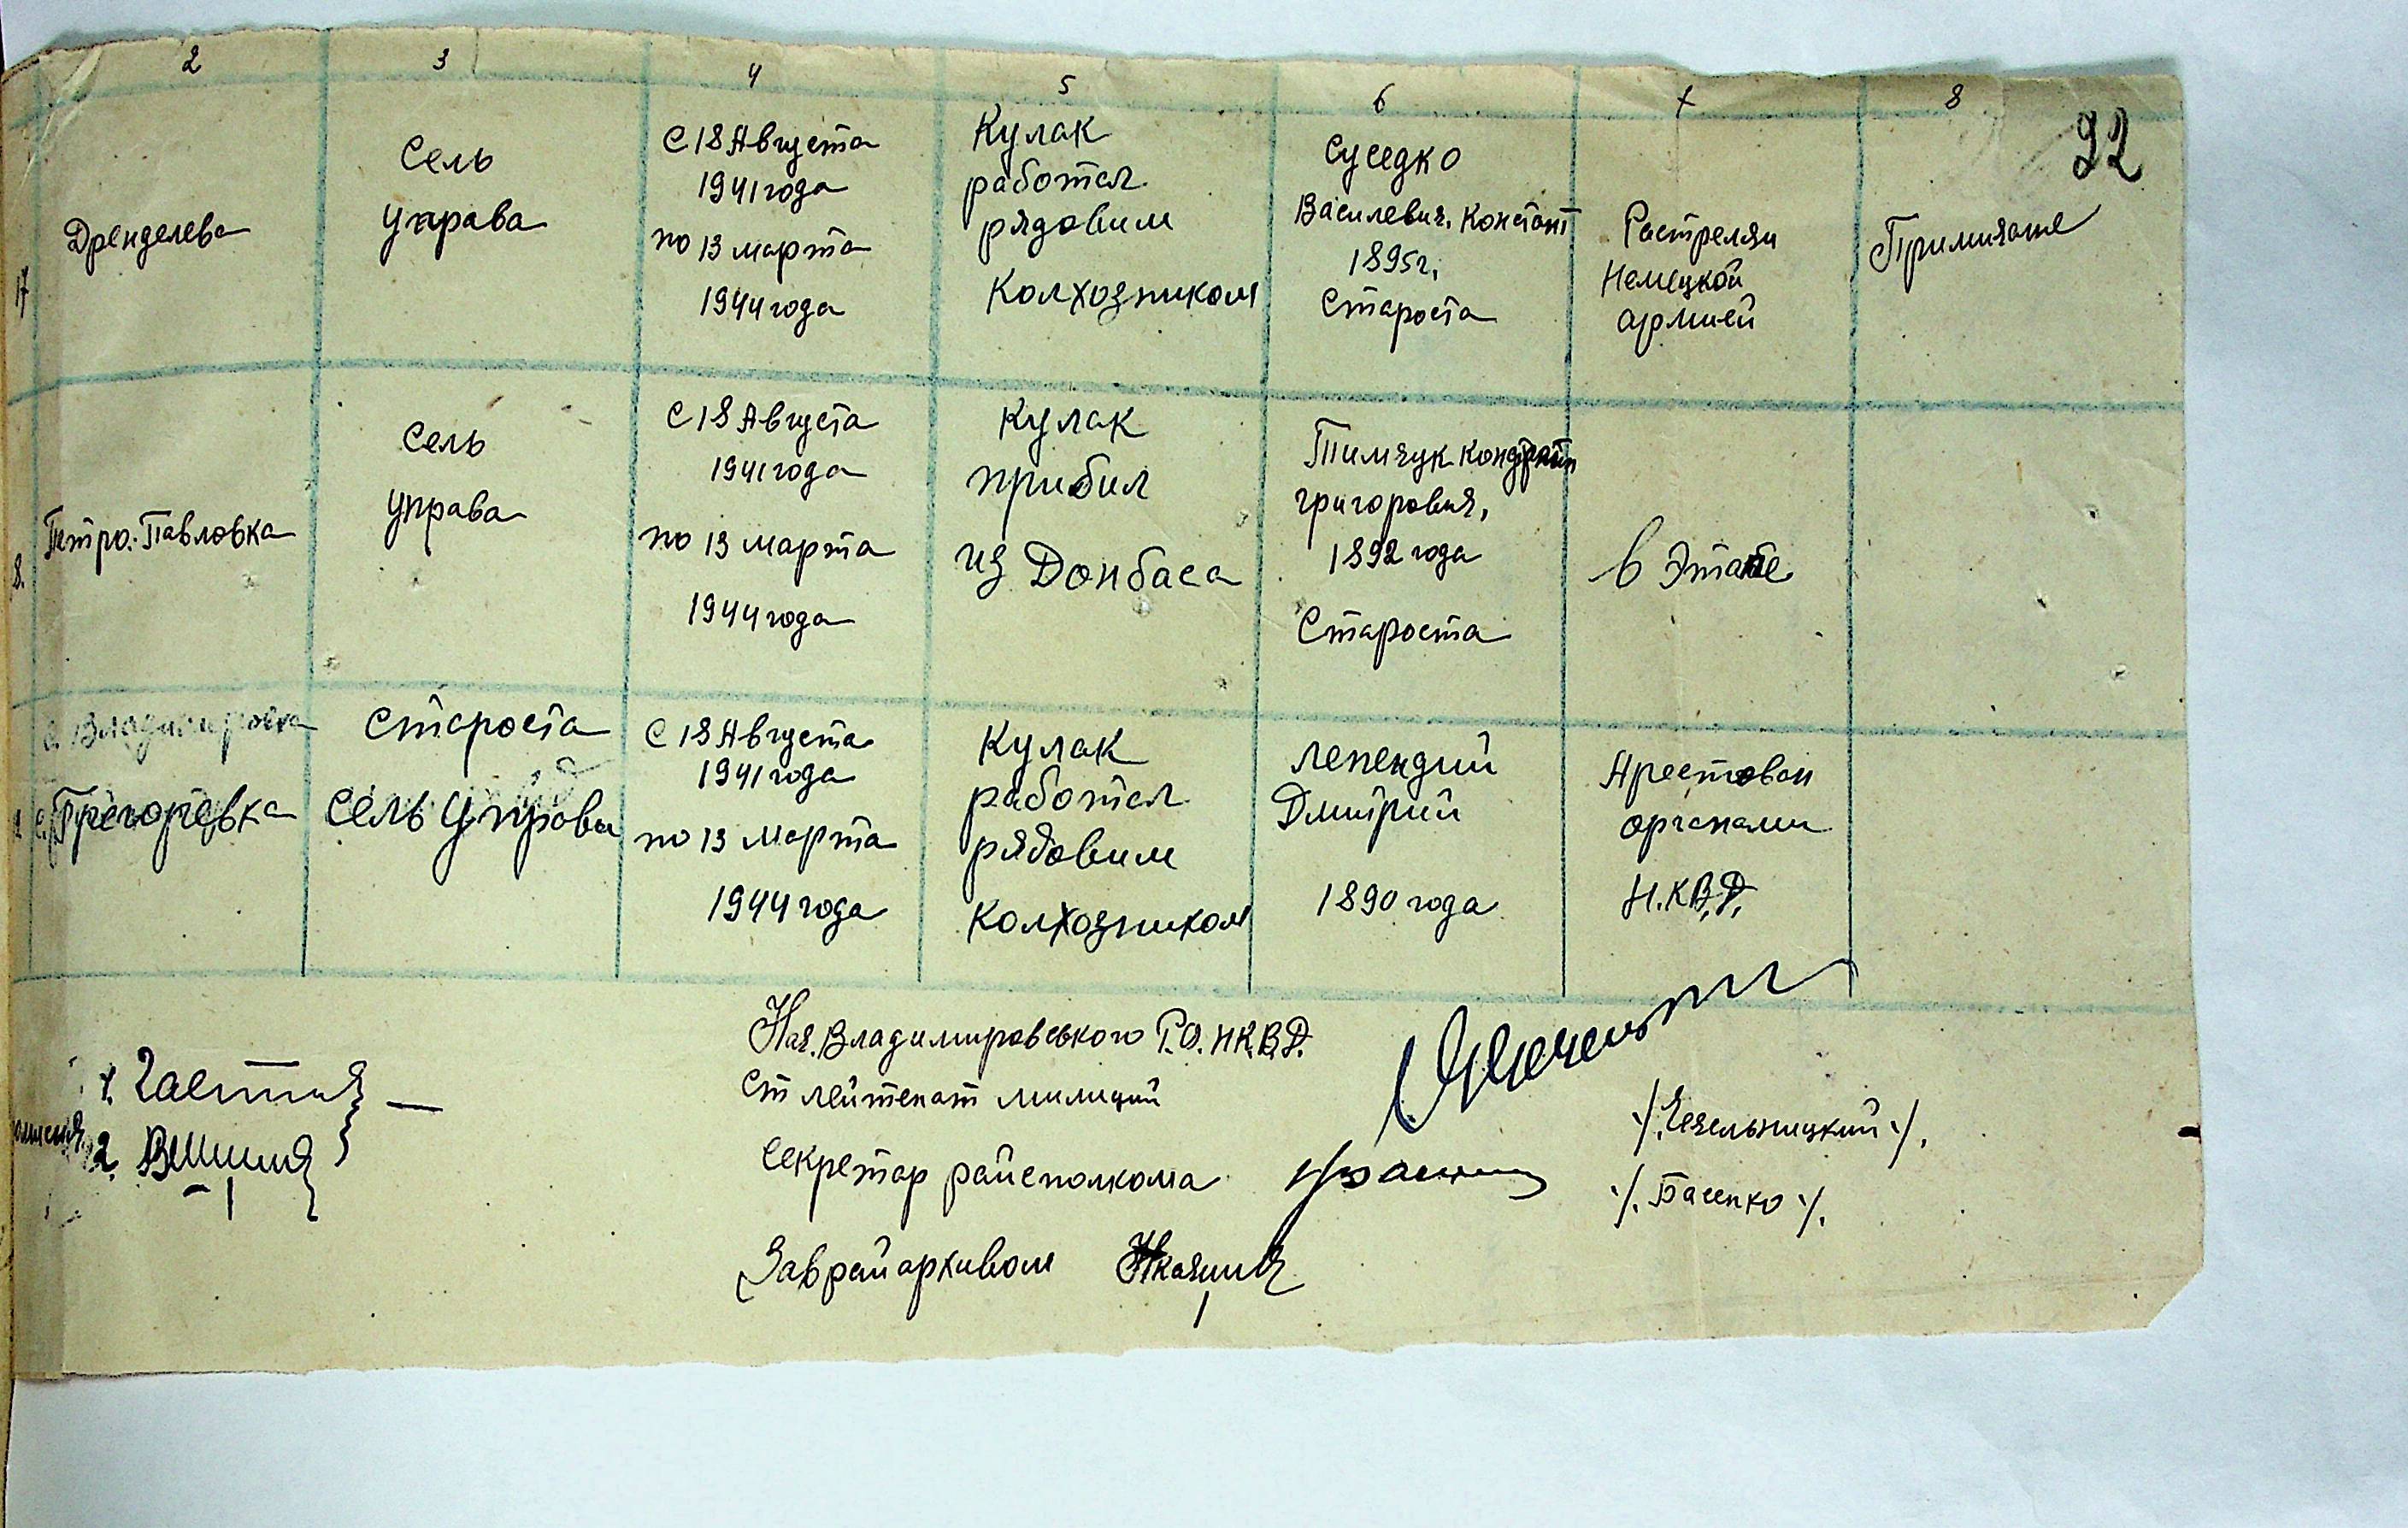 2 3 4 5 6 7 8
92
17
Дренделева
Сель
управа
С 18 Августа
1941 года
по 13 марта
1944 года
Кулак
работал
рядовим
Колхозником
Суседко
Василевич. Констант
1895 г,
Староста
Растрелян
Немецкой
армией
Примичание
8.
Петро-Павловка
Сель
управа
С 18 Августа
1941 года
по 13 марта
1944 года
Кулак
прибил
из Донбаса
Тимчук Кондратий
григорович,
1892 года
Староста
в Этапе
с. Владимировка
Грегоревка
Староста
Сель Управы
С 18 Августа
1941 года
по 13 марта
1944 года
Кулак
работал
рядовим
Колхозником
Лепендий
Дмитрий
1890 года
Арестован
органами
Н.К.В.Д.
Нач. Владимировського Р.О. Н.К.В.Д.
Ст лейтенат милиций
/. Чечельницкий ./.
Секретар райсполкома
/. Басенко ./.
Зав райархивом
1.
2.